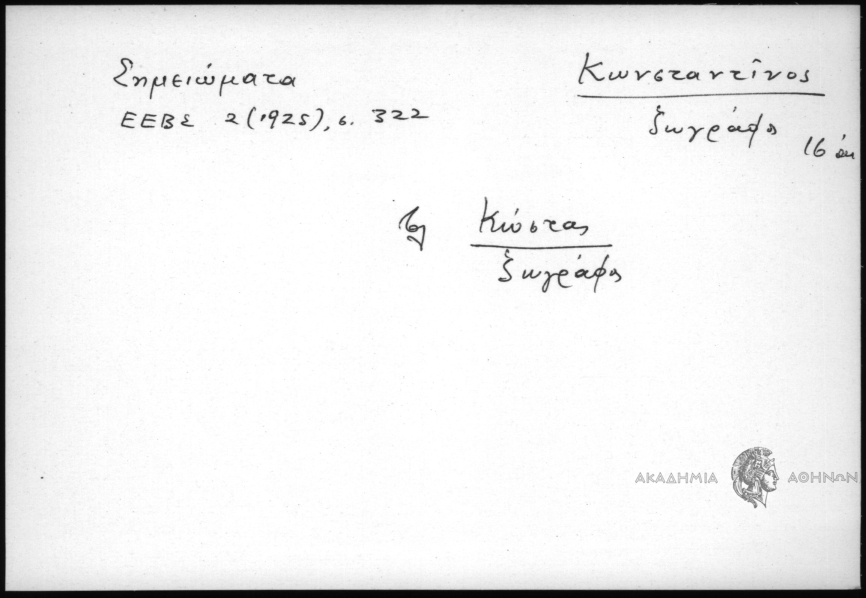 Σημειώματα
ΕΕΒΣ 2 (1925), σ. 322
Κωνσταντῖνος
ζωγράφος
16 αι
Κώστας
ζωγράφος
ΑΚΑΔΗΜΙΑ ΑΘΗΝΩΝ